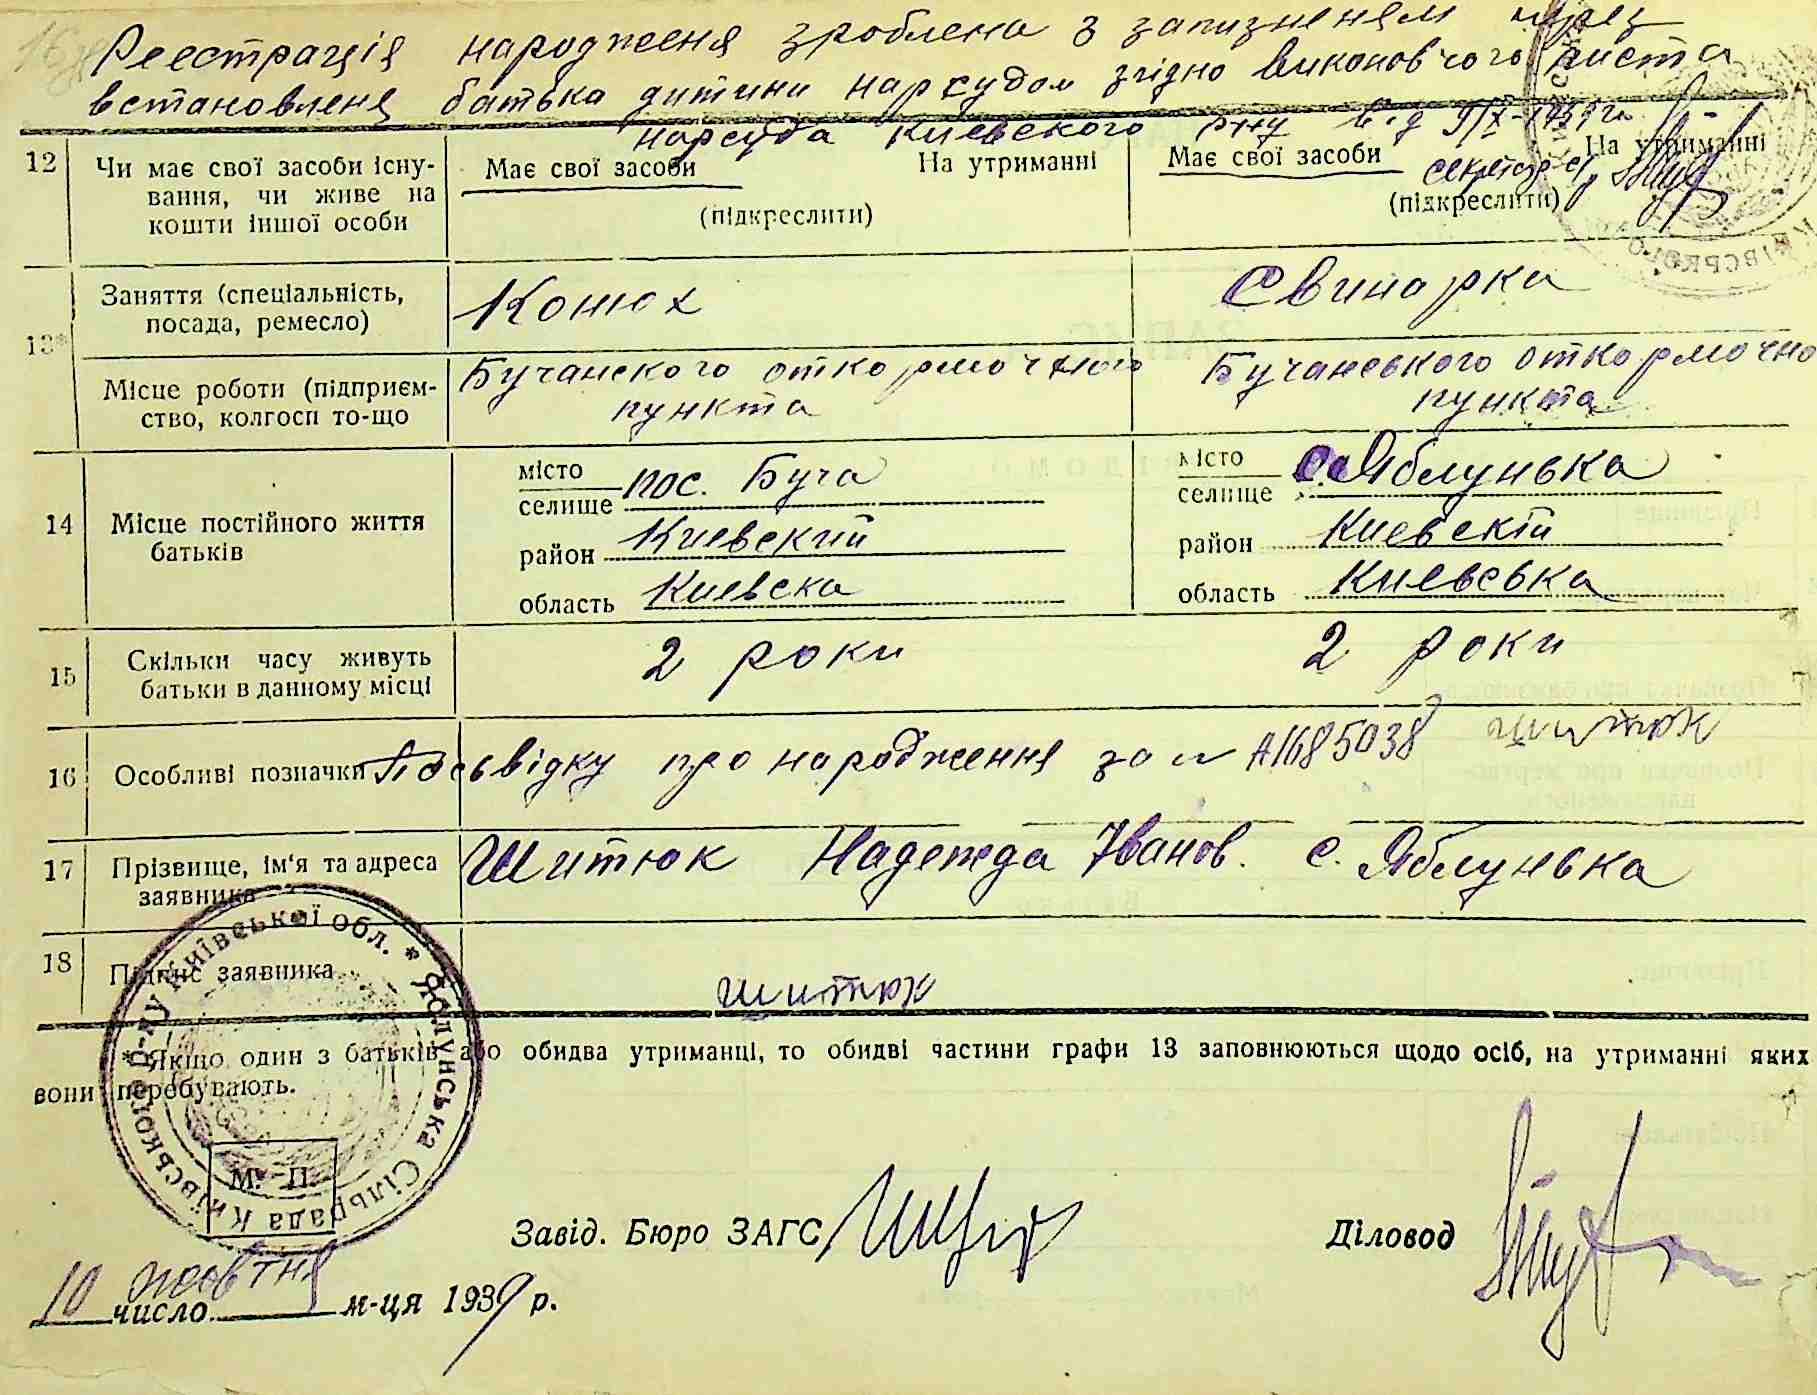 Реестрація народженя зроблена з запизненям через
встановленя батька дитини нарсудом згідно виконовчого листа
нарсуда Киевского р-ну від 9/X-1939 р.
секретар с/р
12 Чи має свої засоби існу-
вання, чи живе на
кошти іншої особи
Має свої засоби На утриманні
(підкреслити)
Має свої засоби На утриманні
(підкреслити)
13* Заняття (спеціальність,
посада, ремесло)
Конюх
Свинарка
Місце роботи (підприєм-
ство, колгосп то-що
Бучанского откормочного
пункта
Бучанського откормочно
пункта
14 Місце постійного життя
батьків
місто
селище пос. Буча
район Киевский
область Киевска
місто
селище с. Яблунька
район Киевскій
область Киевська
15 Скільки часу живуть
батьки в данному місці
2 роки
2 роки
16 Особливі позначки Посвідку про народження за № А1685038 Шитюк
17 Прізвище, ім'я та адреса
заявника
Шитюк Надежда Іванов. с. Яблунька
18 Підпис заявника
Шитюк
* Якщо один з батьків або обидва утриманці, то обидві частини графи 13 заповнюються щодо осіб, на утриманні яких
вони перебувають.
* Яблунська Сільрада Київського р-ну Київської обл.
М. П.
Завід. Бюро ЗАГС
Діловод
10 число жовтня м-ця 1939 р.